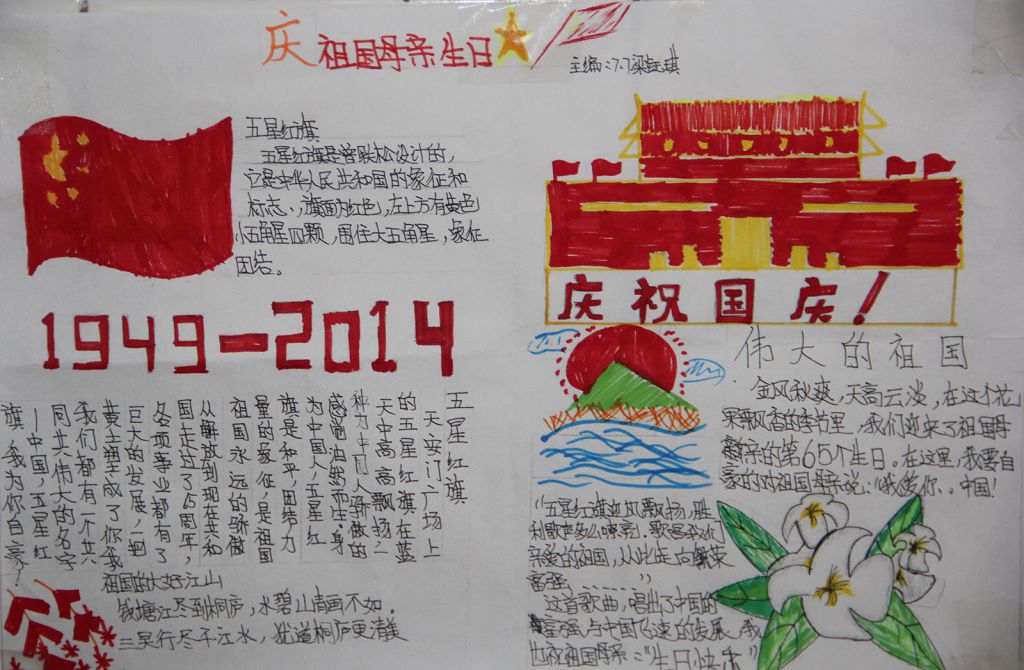 庆祖国母亲生日
主编:7.7梁钰琪
五星红旗
五星红旗是曾联松设计的,
它是中华人民共和国的象征和
标志、,旗面为红色,左上方有黄色
小五角星四颗,围住大五角星,象征
团结。
1949-2014
五星红旗
天安门广场上
的五星红旗在蓝
天中高高飘扬,
种为中国人骄傲的
感悟油然而生,身
为中国人,五星红
旗是和平,团结力
量的象征,是祖国
祖国永远的骄傲
从解放到现在共和
国走过了65周年,
各项事业都有了
巨大的发展,一把
黄土塑成了你我
我们都有一个共
同共伟大的名字
——中国,五星红
旗,我为你自豪!
祖国的大好江山
钱塘江尽到桐庐,水碧山青画不如.
三吴行尽千江水,犹道桐庐更清美
庆祝国庆!
伟大的祖国
金风秋爽,天高云淡,在这个花
果飘香的季节里,我们迎来了祖国母
亲的第65个生日.在这里,我要自
豪的对祖国母亲说:"我爱你..中国!
"五星红旗迎风飘扬,胜
利歌声多么嘹亮.歌唱我们
亲爱的祖国,从此走向繁荣
富强......."
这首歌曲,唱出了中国的
富强与中国飞速的发展.我
也祝祖国母亲:"生日快乐"